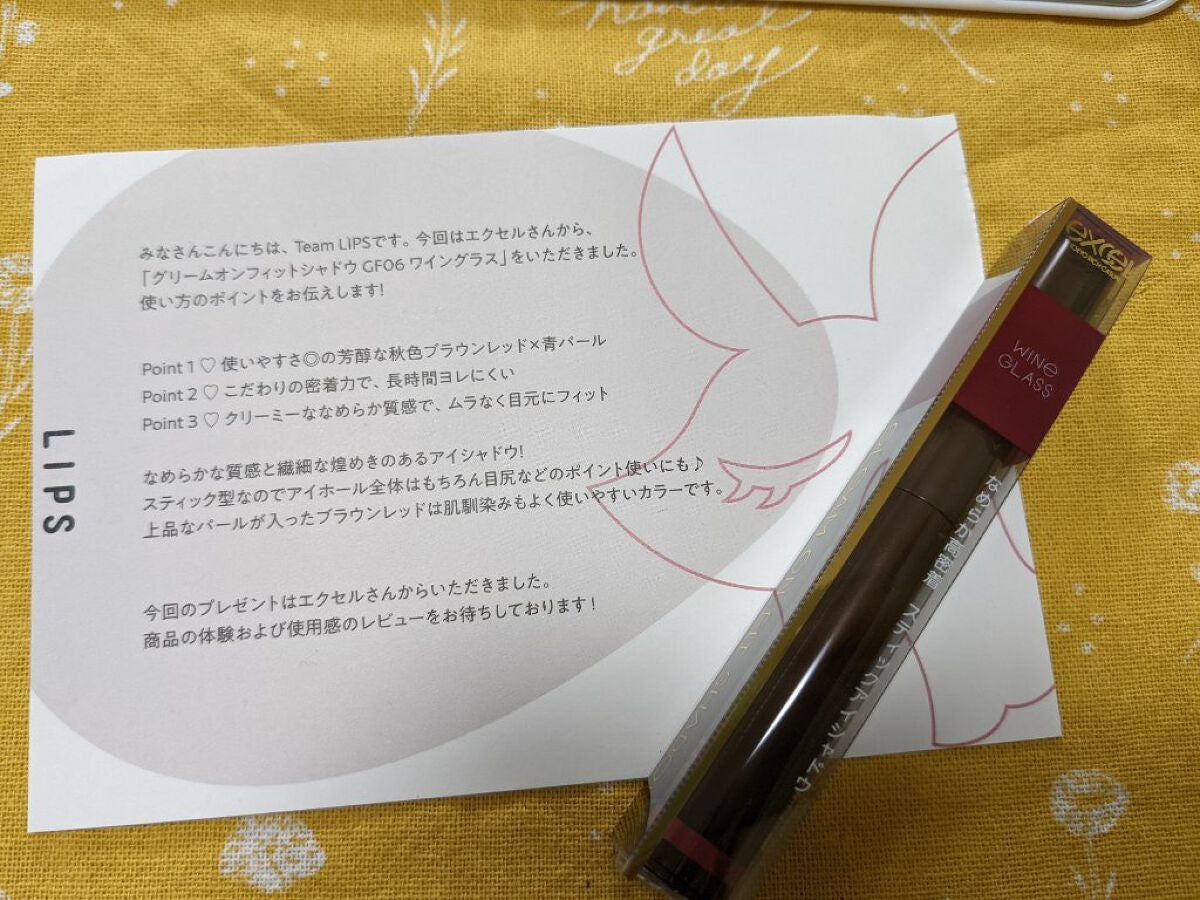 great
day
みなさんこんにちは、Team LIPSです。今回はエクセルさんから、
「グリームオンフィットシャドウ GF06 ワイングラス」をいただきました。
使い方のポイントをお伝えします!
Point 1 ♡ 使いやすさ◎の芳醇な秋色ブラウンレッド×青パール
Point 2 ♡ こだわりの密着力で、長時間ヨレにくい
Point 3 ♡ クリーミーななめらか質感で、ムラなく目元にフィット
なめらかな質感と繊細な煌めきのあるアイシャドウ!
スティック型なのでアイホール全体はもちろん目尻などのポイント使いにも♪
上品なパールが入ったブラウンレッドは肌馴染みもよく使いやすいカラーです。
今回のプレゼントはエクセルさんからいただきました。
商品の体験および使用感のレビューをお待ちしております!
LIPS
excel
WINE
GLASS
なめらか高密着 スティックアイシャドウ